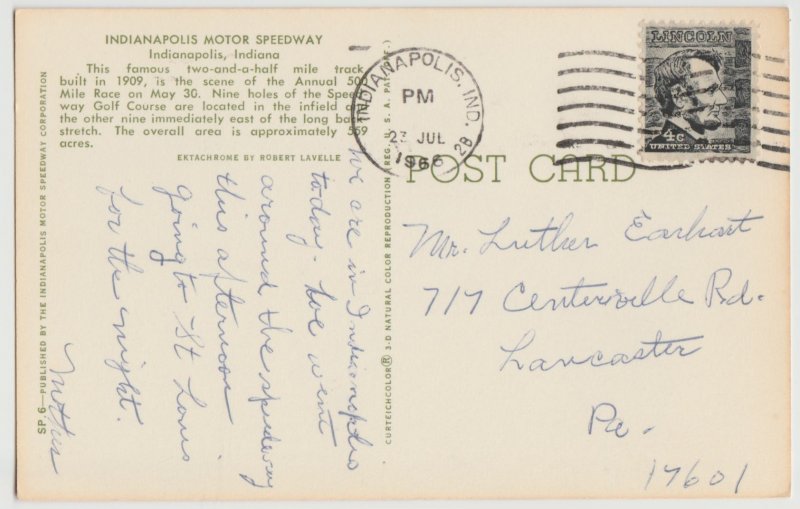 INDIANAPOLIS MOTOR SPEEDWAY
Indianapolis, Indiana
This famous two-and-a-half mile track
built in 1909, is the scene of the Annual 500
Mile Race on May 30. Nine holes of the Speed-
way Golf Course are located in the infield and
the other nine immediately east of the long back
stretch. The overall area is approximately 559
acres.
EKTACHROME BY ROBERT LAVELLE
SP 6—PUBLISHED BY THE INDIANAPOLIS MOTOR SPEEDWAY CORPORATION
We are in Indianapolis
today. We went
around the speedway
this afternoon
going to St Louis
for the night.
Mother
CURTEICHCOLOR® 3-D NATURAL COLOR REPRODUCTION (REG. U.S.A. PAT. OFF.)
INDIANAPOLIS, IND. 28
PM
23 JUL
1966
LINCOLN
4c
UNITED STATES
POST CARD
Mr. Luther Earhart
717 Centerville Rd.
Lancaster
Pa.
17601